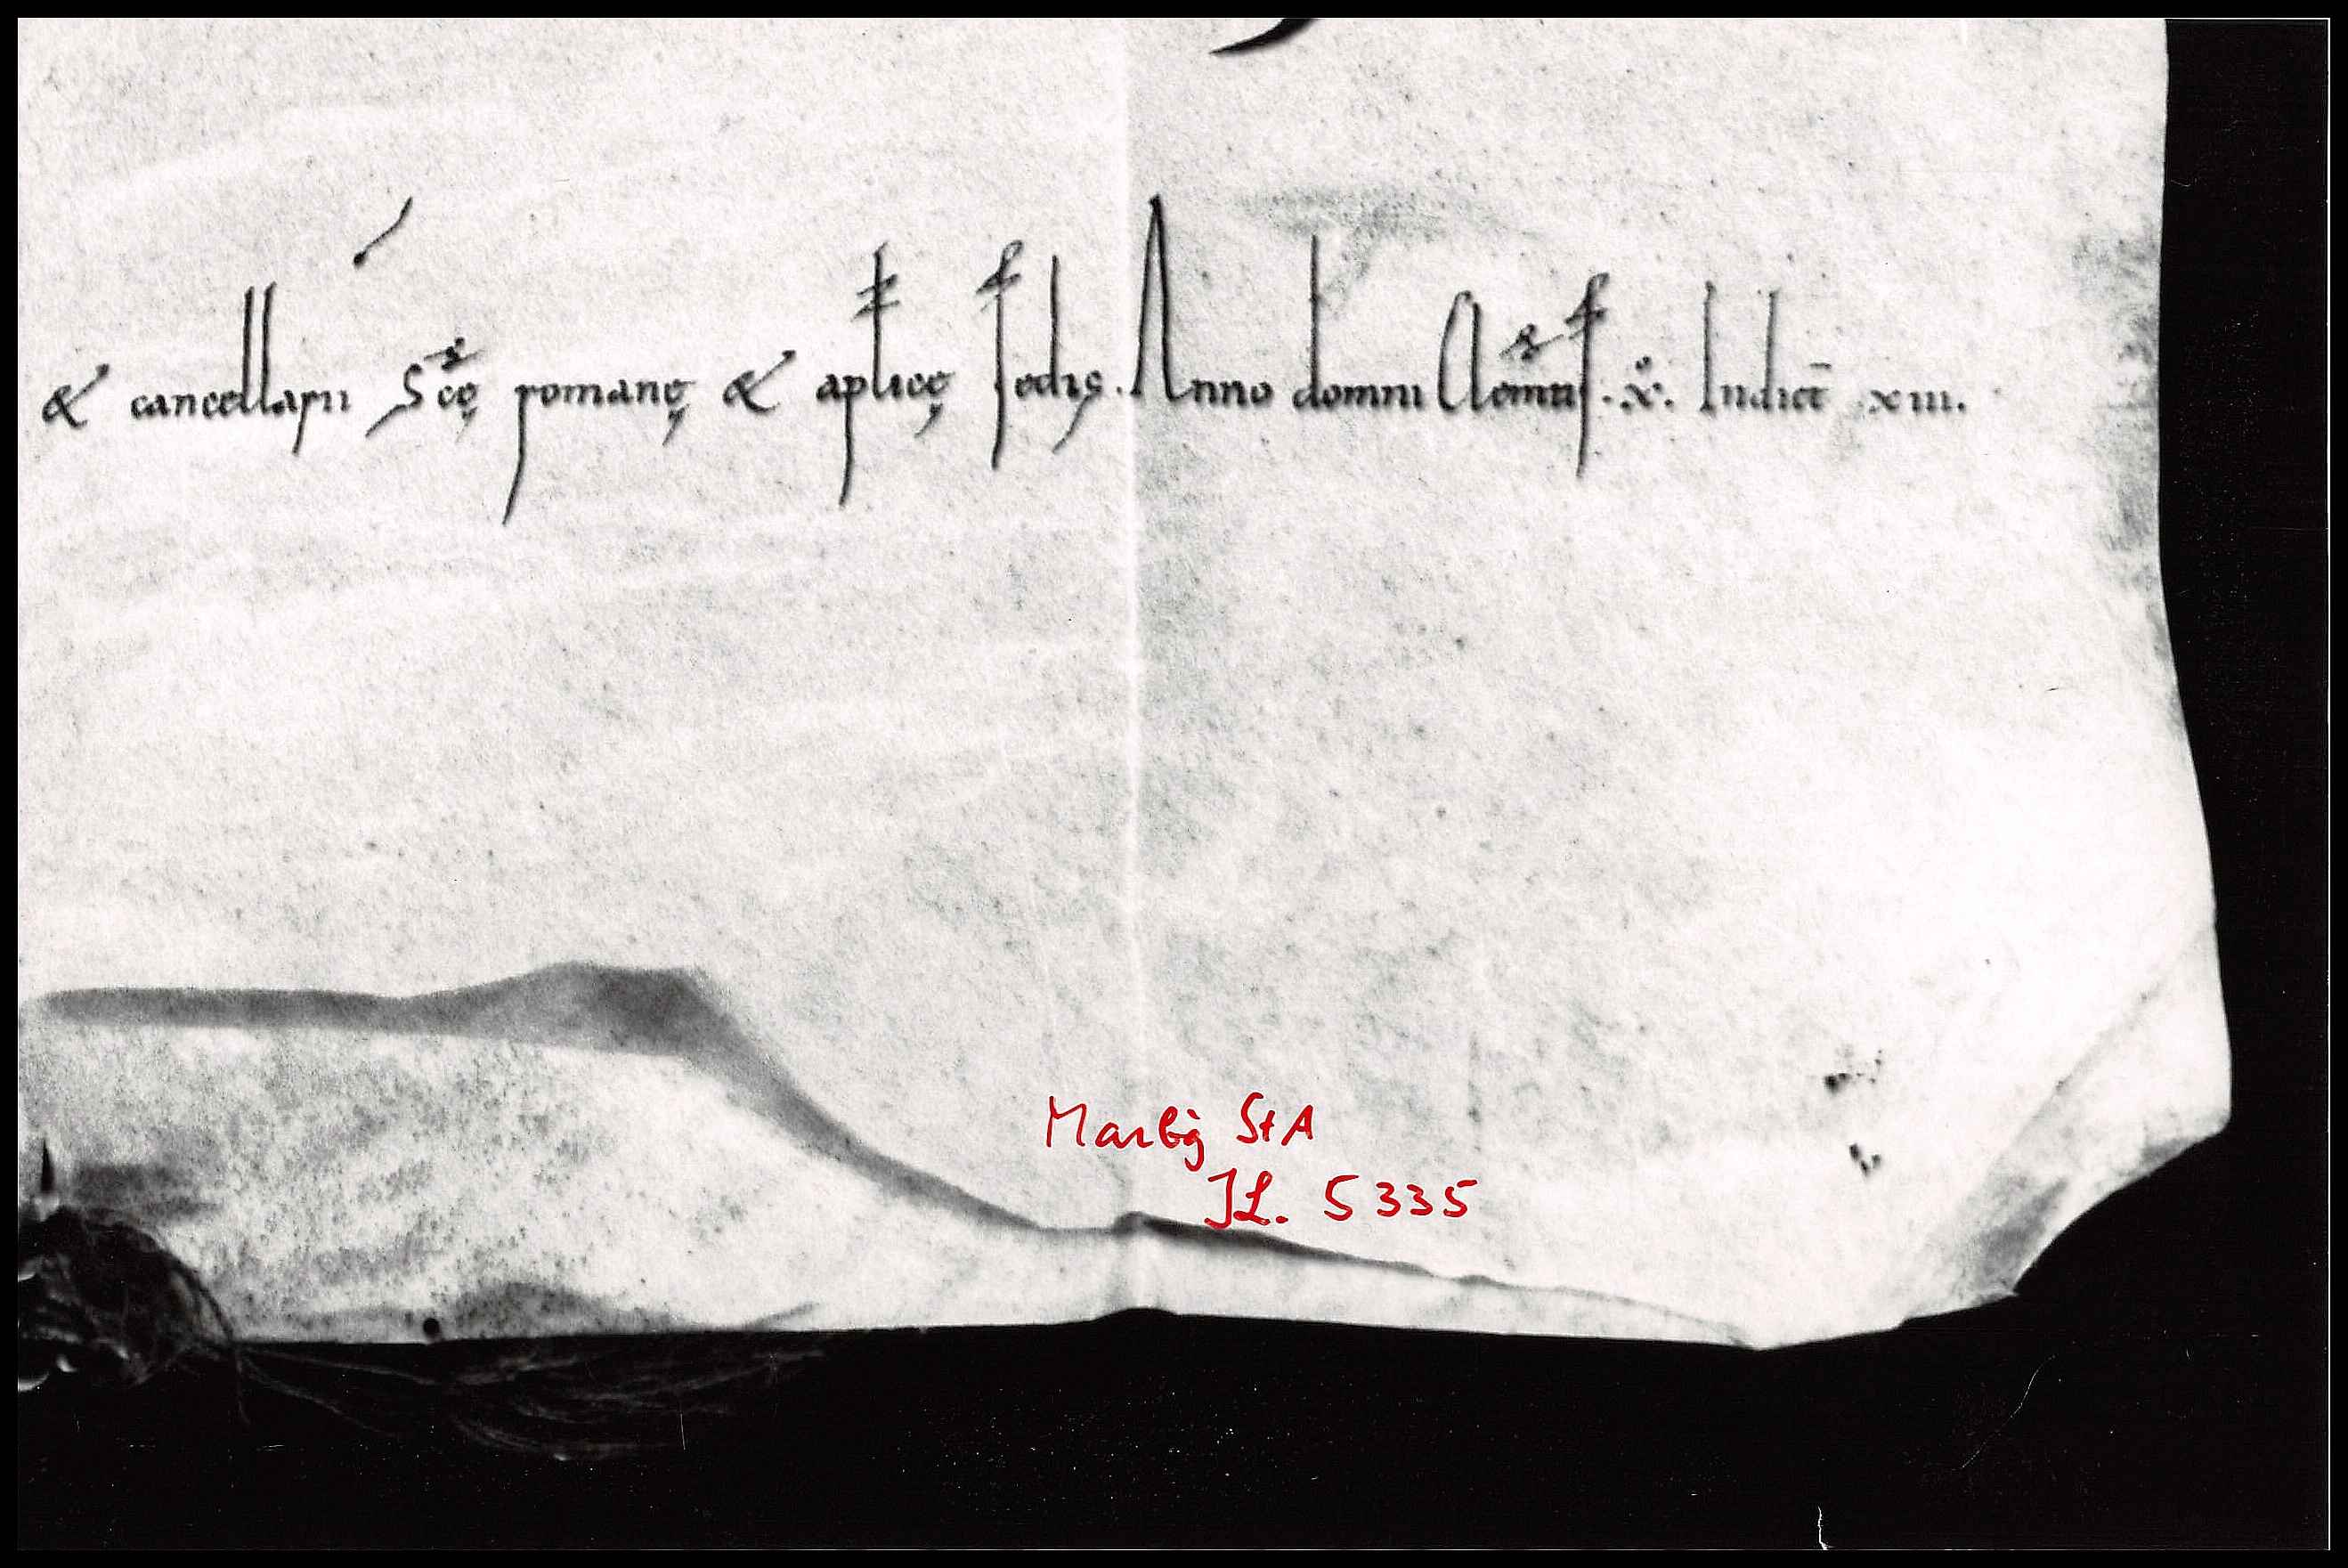 & cancellarii Scę romanę & aplicę sedis. Anno domni Clemtis . x°. Indict̄ xiii.
Marbg StA
JL. 5335